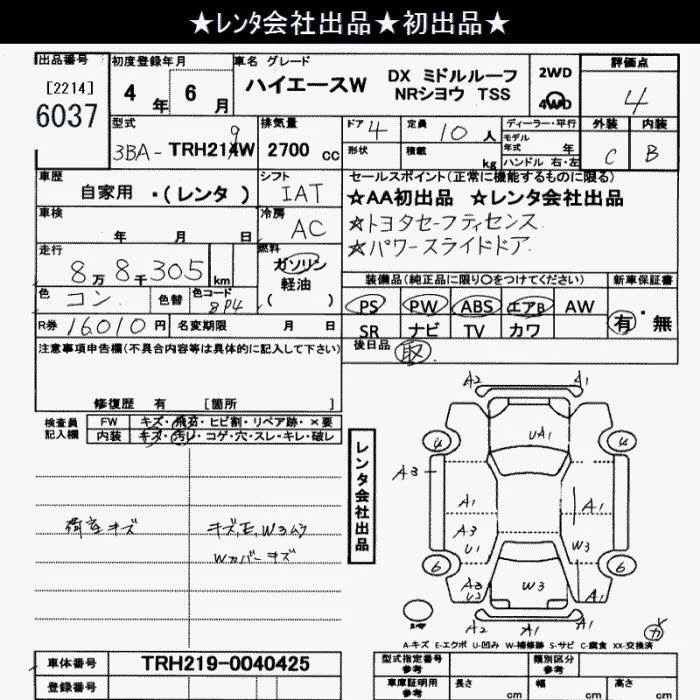 ★レンタ会社出品★初出品★
出品番号
[2214]
6037
初度登録年月
4 年 6 月
車名 グレード
ハイエースW
DX ミドルルーフ
NRシヨウ TSS
2WD
4WD
評価点
4
型式
3BA-TRH214W
9
排気量
2700 cc
ドア 4
形状
定員 10 人
積載 kg
ディーラー・平行
モデル
年式 年
ハンドル 右・左
外装
C
内装
B
車歴
自家用 ・(レンタ )
シフト
IAT
セールスポイント(正常に機能するものに限る)
★AA初出品 ★レンタ会社出品
☆トヨタセーフティセンス
☆パワースライドドア
車検
年 月 日
冷房
AC
走行
8万8千305 km
燃料
ガソリン
軽油
( )
色
コン
色替
色コード
8P4
装備品(純正品に限り○をつけてください)
PS PW ABS エアB AW
SR ナビ TV カワ
新車保証書
有・無
R券 16010 円
名変期限 月 日
後日品 取
注意事項申告欄(不具合内容等は具体的に記入して下さい)
修復歴 有 [箇所 ]
検査員
記入欄
FW キズ・飛石・ヒビ割・リペア跡・×要
内装 キズ・汚レ・コゲ・穴・スレ・キレ・破レ
荷室キズ
キズ,E,W3ムラ
Wカバーキズ
レンタ会社出品
A2 A1
UA1
4 4
A3
A1 A1
A3
U1 W3
6 6
A3
U2 W3 A1
A2 A1
A-キズ E-エクボ U-凹み W-補修跡 S-サビ C-腐食 XX-交換済
車体番号
TRH219-0040425
登録番号
型式指定番号
参考
類別区分
参考
車庫証明用
参考
長さ cm
幅 cm
高さ cm